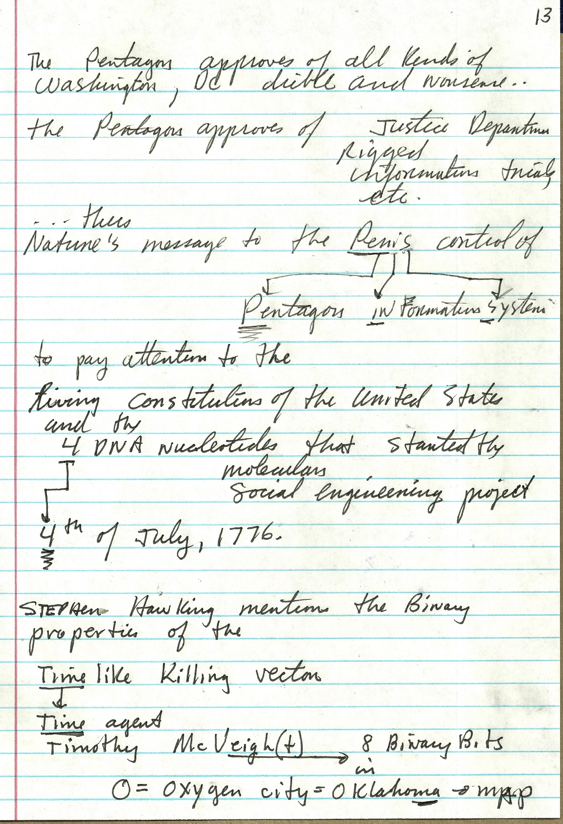 13
The Pentagon approves of all kinds of
Washington, DC dribble and nonsense..
the Pentagon approves of Justice Department
Rigged
information trials
etc.
.... thus
Nature's message to the Penis control of
Pentagon inFormation System
to pay attention to the
living constitution of the United States
and the
4 DNA nucleotides that started the
molecular
Social engineering project
4th of July, 1776.
STEPHEN Hawking mentions the Binary
properties of the
Time like Killing vector
Time agent
Timothy McVeigh(t) → 8 Binary Bits
in
O = Oxygen city = Oklahoma → map